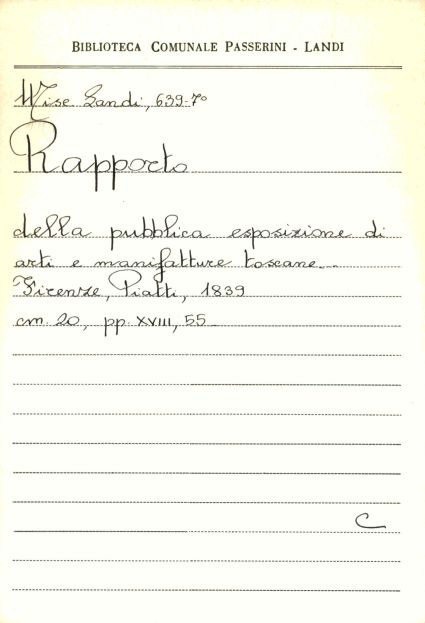 BIBLIOTECA COMUNALE PASSERINI - LANDI
Mise Landi, 639-7º
Rapporto
della pubblica esposizione di
arti e manifatture toscane...
Firenze, Piatti, 1839
cm. 20, pp. XVIII, 55
C